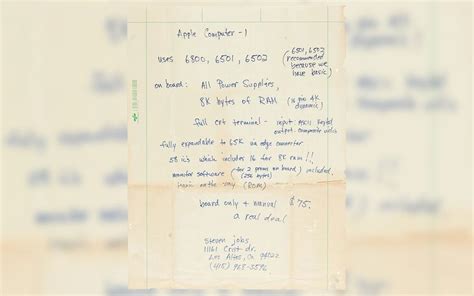 Apple Computer - 1
uses 6800, 6501, 6502
(6501, 6502
recommended
because we
have basic)
on board: All Power Supplies,
8K bytes of RAM (16 pin 4K
dynamic)
full crt terminal - input: ASCII
output: composite video
fully expandable to 65K via edge connector
58 ic's which includes 16 for 8K ram!!
monitor software (for 2 proms on board) included.
(256 bytes)
basic on the way (ROM)
board only + manual $75.
a real deal
steven jobs
11161 Crist dr.
Los Altos, Ca 94022
(415) 968-3596